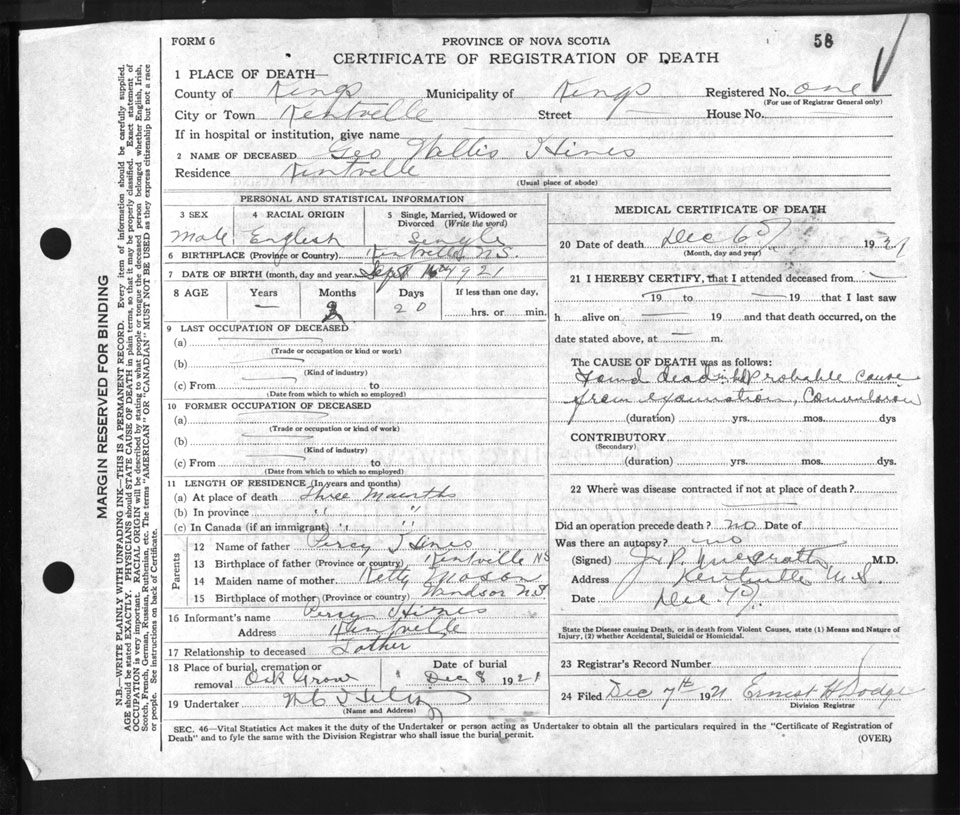 FORM 6
PROVINCE OF NOVA SCOTIA
58
CERTIFICATE OF REGISTRATION OF DEATH
1 PLACE OF DEATH—
County of Kings Municipality of Kings Registered No. one
(For use of Registrar General only)
City or Town Kentville Street — House No.
If in hospital or institution, give name —
2 NAME OF DECEASED Geo Wallis Hines
Residence Kentville
(Usual place of abode)
PERSONAL AND STATISTICAL INFORMATION
3 SEX 4 RACIAL ORIGIN 5 Single, Married, Widowed or Divorced (Write the word)
Male English Single
6 BIRTHPLACE (Province or Country) Kentville N.S.
7 DATE OF BIRTH (month, day and year) Sept 16th 1921
8 AGE Years Months Days If less than one day,
— 2 20 hrs. or min.
9 LAST OCCUPATION OF DECEASED
(a)
(Trade or occupation or kind or work)
(b)
(Kind of industry)
(c) From to
(Date from which to which so employed)
10 FORMER OCCUPATION OF DECEASED
(a)
(Trade or occupation or kind of work)
(b)
(Kind of industry)
(c) From to
(Date from which to which so employed)
11 LENGTH OF RESIDENCE (In years and months)
(a) At place of death three months
(b) In province " "
(c) In Canada (if an immigrant) " "
Parents
12 Name of father Percy Hines
13 Birthplace of father (Province or country) Kentville NS
14 Maiden name of mother Netty Mason
15 Birthplace of mother (Province or country) Windsor NS
16 Informant's name Percy Hines
Address Kentville
17 Relationship to deceased Father
18 Place of burial, cremation or removal Oak Grove
Date of burial Dec 8 1921
19 Undertaker
(Name and Address)
MEDICAL CERTIFICATE OF DEATH
20 Date of death Dec 6 1921
(Month, day and year)
21 I HEREBY CERTIFY, that I attended deceased from —
— 19 to — 19 that I last saw
h alive on — 19 and that death occurred, on the
date stated above, at — m.
The CAUSE OF DEATH was as follows:
Found dead in bed Probable cause
from examination, Convulsion
(duration) yrs. mos. dys
CONTRIBUTORY
(Secondary)
(duration) yrs. mos. dys.
22 Where was disease contracted if not at place of death?
Did an operation precede death? no Date of
Was there an autopsy? no
(Signed) J. P. McGrath M.D.
Address Kentville N.S.
Date Dec 7
State the Disease causing Death, or in death from Violent Causes, state (1) Means and Nature of
Injury, (2) whether Accidental, Suicidal or Homicidal.
23 Registrar's Record Number
24 Filed Dec 7th 1921 Ernest H Dodge
Division Registrar
SEC. 46—Vital Statistics Act makes it the duty of the Undertaker or person acting as Undertaker to obtain all the particulars required in the "Certificate of Registration of
Death" and to fyle the same with the Division Registrar who shall issue the burial permit.
(OVER)
MARGIN RESERVED FOR BINDING
N.B.—WRITE PLAINLY WITH UNFADING INK—THIS IS A PERMANENT RECORD. Every item of information should be carefully supplied.
AGE should be stated EXACTLY. PHYSICIANS should STATE CAUSE OF DEATH in plain terms, so that it may be properly classified. Exact statement of
OCCUPATION is very important. RACIAL ORIGIN will be described by stating to what people or tongue the deceased person belonged whether English, Irish,
Scotch, French, German, Russian, Ruthenian, etc. The terms "AMERICAN" OR "CANADIAN" MUST NOT BE USED as they express citizenship but not a race
or people. See instructions on back of Certificate.